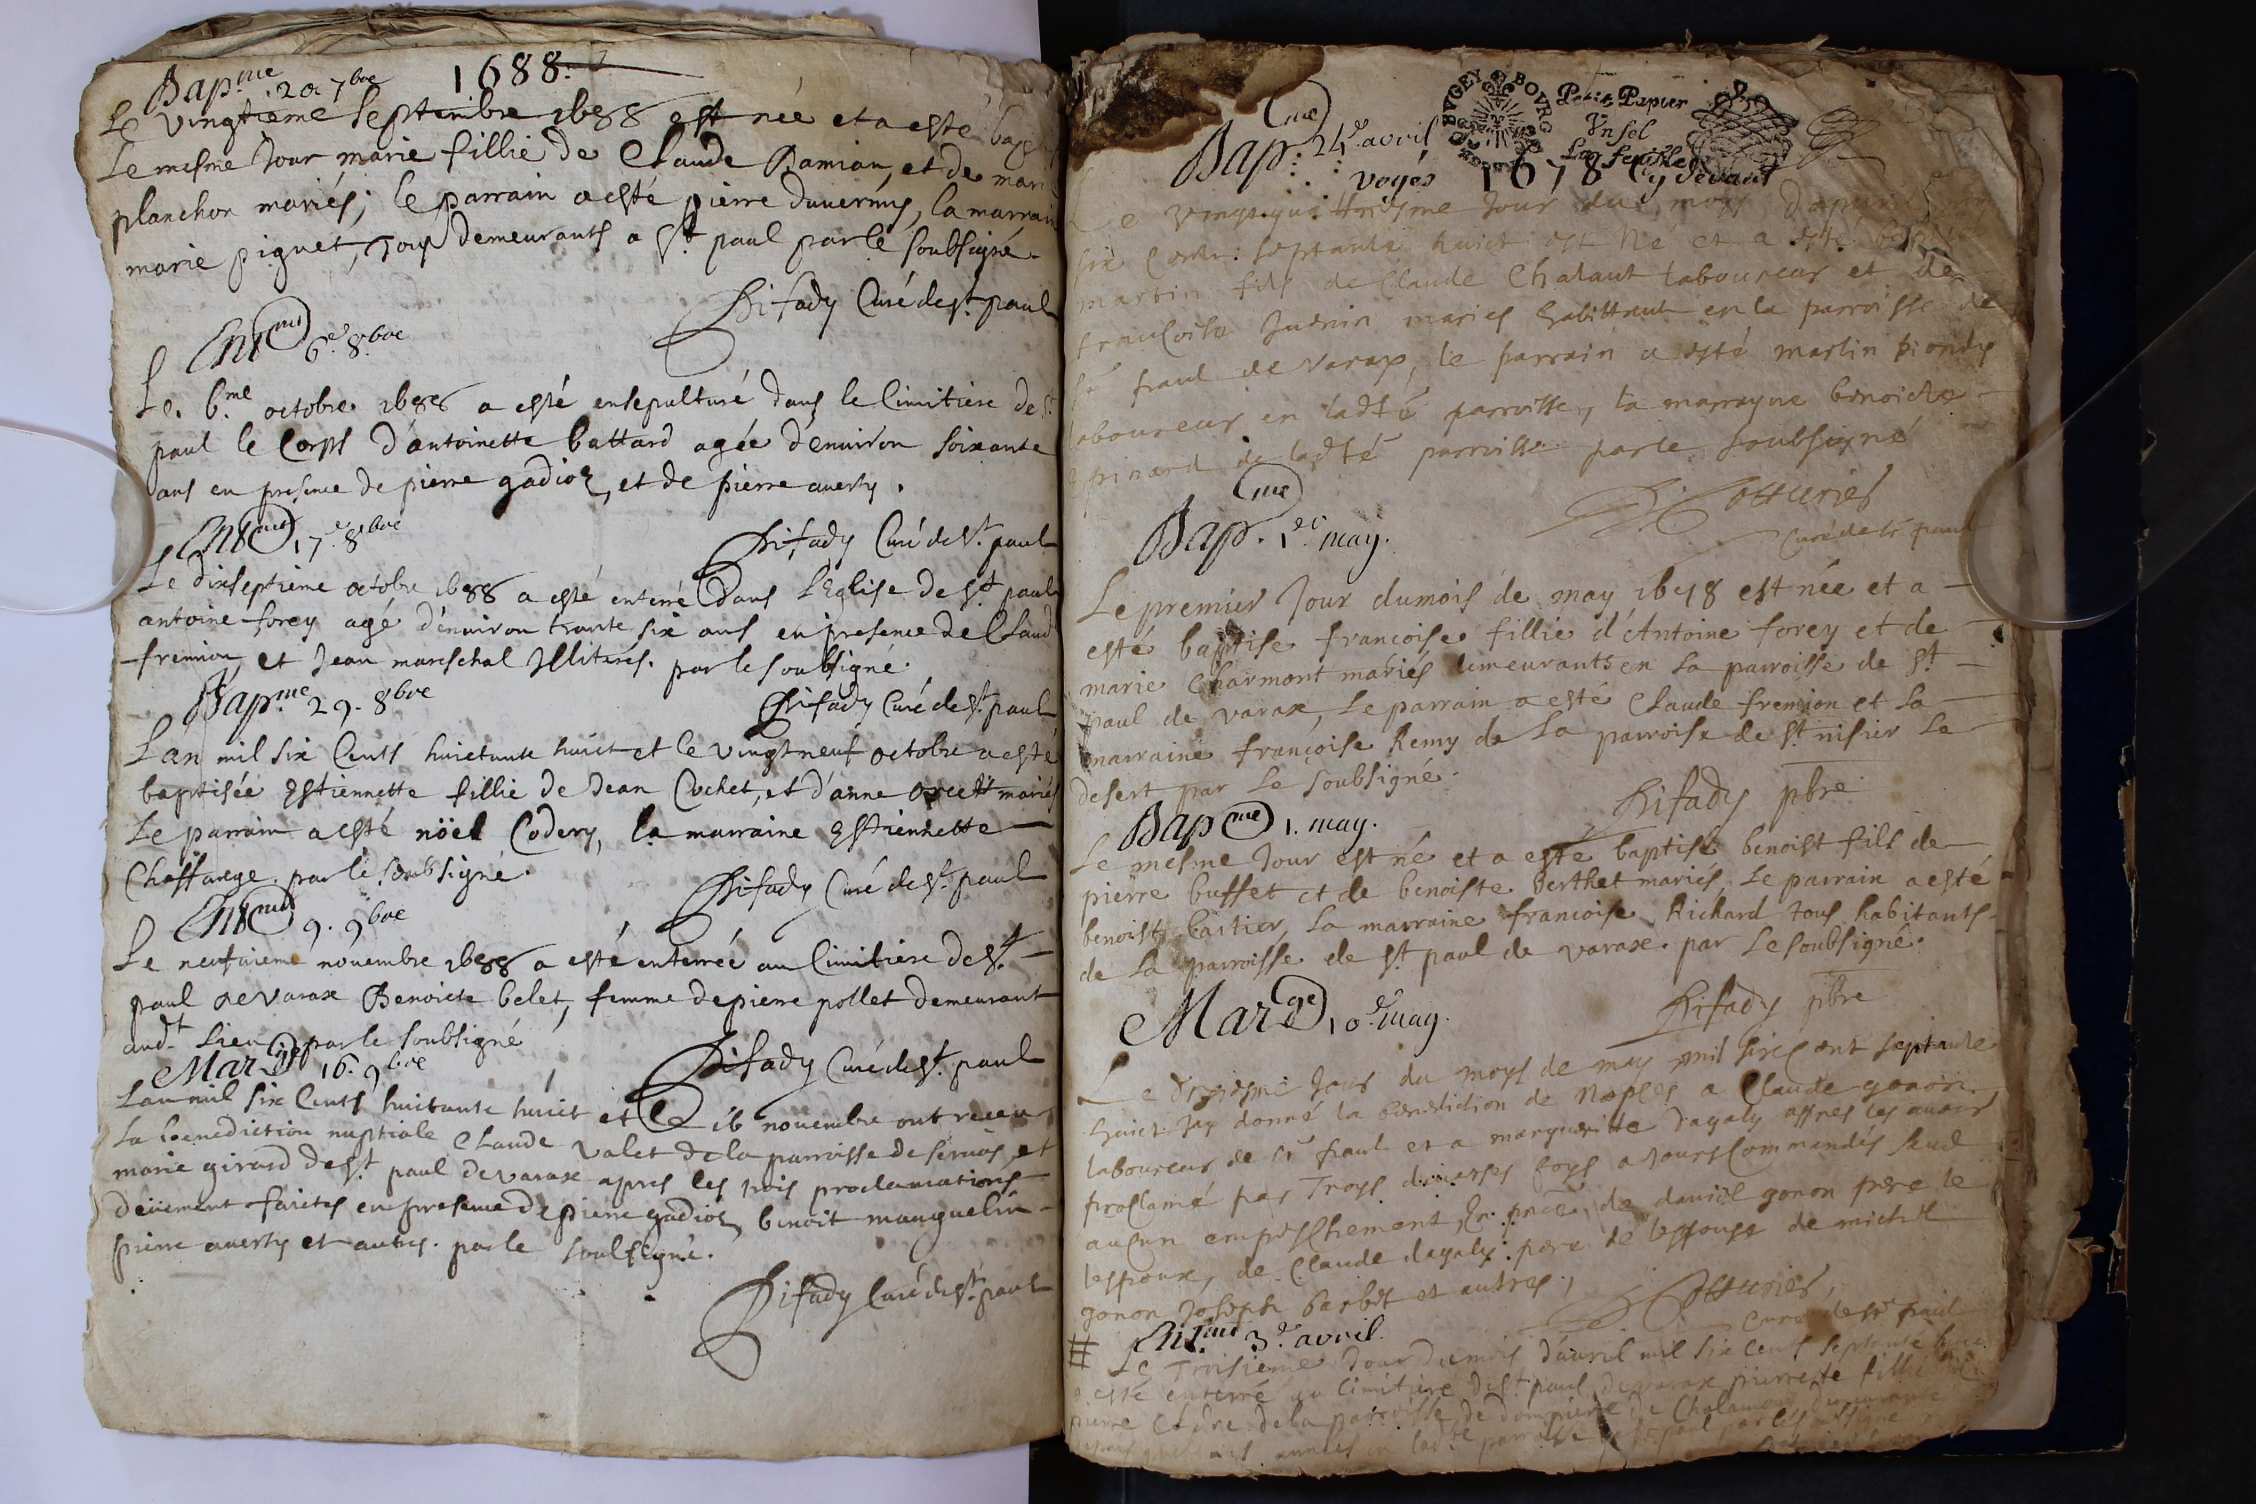 1688.
Bap.me 20 7bre
Le vingtieme septembre 1688 est née et a esté bap
Le mesme Jour marie fillie de Claude Damian, et de mari
planchon mariés; le parrain a esté pierre duvernay, la marrain
marie piguet, tous demeurants a St paul par le soubsigné.
Difady Curé de St paul
Ent.mt 6e 8bre
Le 6.me octobre 1688 a esté ensepulturé dans le Cimitiere de St
paul le Corps d'antoinette battard agée d'environ soixante
ans en presence de pierre gadioz, et de pierre averty.
Ent.mt 17e 8bre
Difady Curé de St paul
Le dixseptieme octobre 1688 a esté enterré dans L'Eglise de St paul
antoine forey agé d'environ trante six ans en presence de Claud
fremion et Jean mareschal Illiterés. par le soubsigné.
Bap.me 29. 8bre
Difady Curé de St paul
L'an mil six Cents huictante huict et le vingt neuf octobre a esté
baptisée Estiennette fillie de Jean Cochet, et d'anne mariés
Le parrain a esté nöel Codery, la marraine Estiennette
Chaffange. par le soubsigné.
Difady Curé de St paul
Ent.mt 9. 9bre
Le neufvieme novembre 1688 a esté enterrée au Cimitiere de St
paul de varax Benoicte belet, femme de pierre pollet demeurant
aud.t Lieu par le soubsigné
Difady Curé de St paul
Mar.ge 16. 9bre
L'an mil six Cents huictante huict et le 16 novembre ont receu
La benediction nuptiale Claude valet de la parroisse de servas, et
marie girard de St paul de varax apres les trois proclamations
deüement faictes en presence de pierre gadioz, benoit manguelin
pierre averty et autres. par le soubsigné.
Difady Curé de St paul
BVGEY BOVRG
Petit Papier
Vn sol
La feuille
Bap.me 24e avril
voyés 1678 Cy devant
Le vingt quattriesme Jour du moys d'apvril
six Cents septante huict est Né et a esté
martin fils de Claude Chalant laboureur et de
francoise Juenin maries habittant en la parroisse de
St paul de varax, le parrain a esté martin
laboureur en ladte parroisse, la marrayne benoicte
de ladte parroisse par le soubsigné
Cotturier
Curé de St paul
Bap.me 1er may.
Le premier Jour du mois de may 1678 est née et a
esté baptise francoise fillie d'Antoine forey et de
marie Charmont mariés demeurants en la parroisse de St
paul de varax, Le parrain a esté Claude fremion et La
marraine françoise Remy de La parroise de St nisier Le
desert par Le Soubsigné.
Difady pbre
Bap.me 1. may.
Le mesme Jour est né et a esté baptisé benoist fils de
pierre buffet et de benoiste berthet mariés, Le parrain a esté
benoist Cartier, La marraine francoise Richard tous habitants
de La parroisse de St paul de varax. par Le soubsigné.
Difady pbre
Mar.ge 10e may.
Le dixiesme Jour du moys de may mil six Cent septante
huict Jay donné la benediction de Nopces a Claude gonon
laboureur de St paul et a margueritte dagaly appres les avoir
proclamé par Troys diverses foys a Jours Commandés sauf
aucun empeschement, En pnce de daniel gonon pere de
lespoux, de Claude dagaly pere de lespouse de michel
gonon Joseph barbet et autres.
Cotturier,
Curé de St paul
# Ent.mt 3e avril.
Le Troisieme Jour du mois d'avril mil six Cent septante huic
a esté enterré au Cimitiere de St paul de varax pierrette fillie
pierre de la parroisse de dompierre de Chalamont
années en ladte parroisse